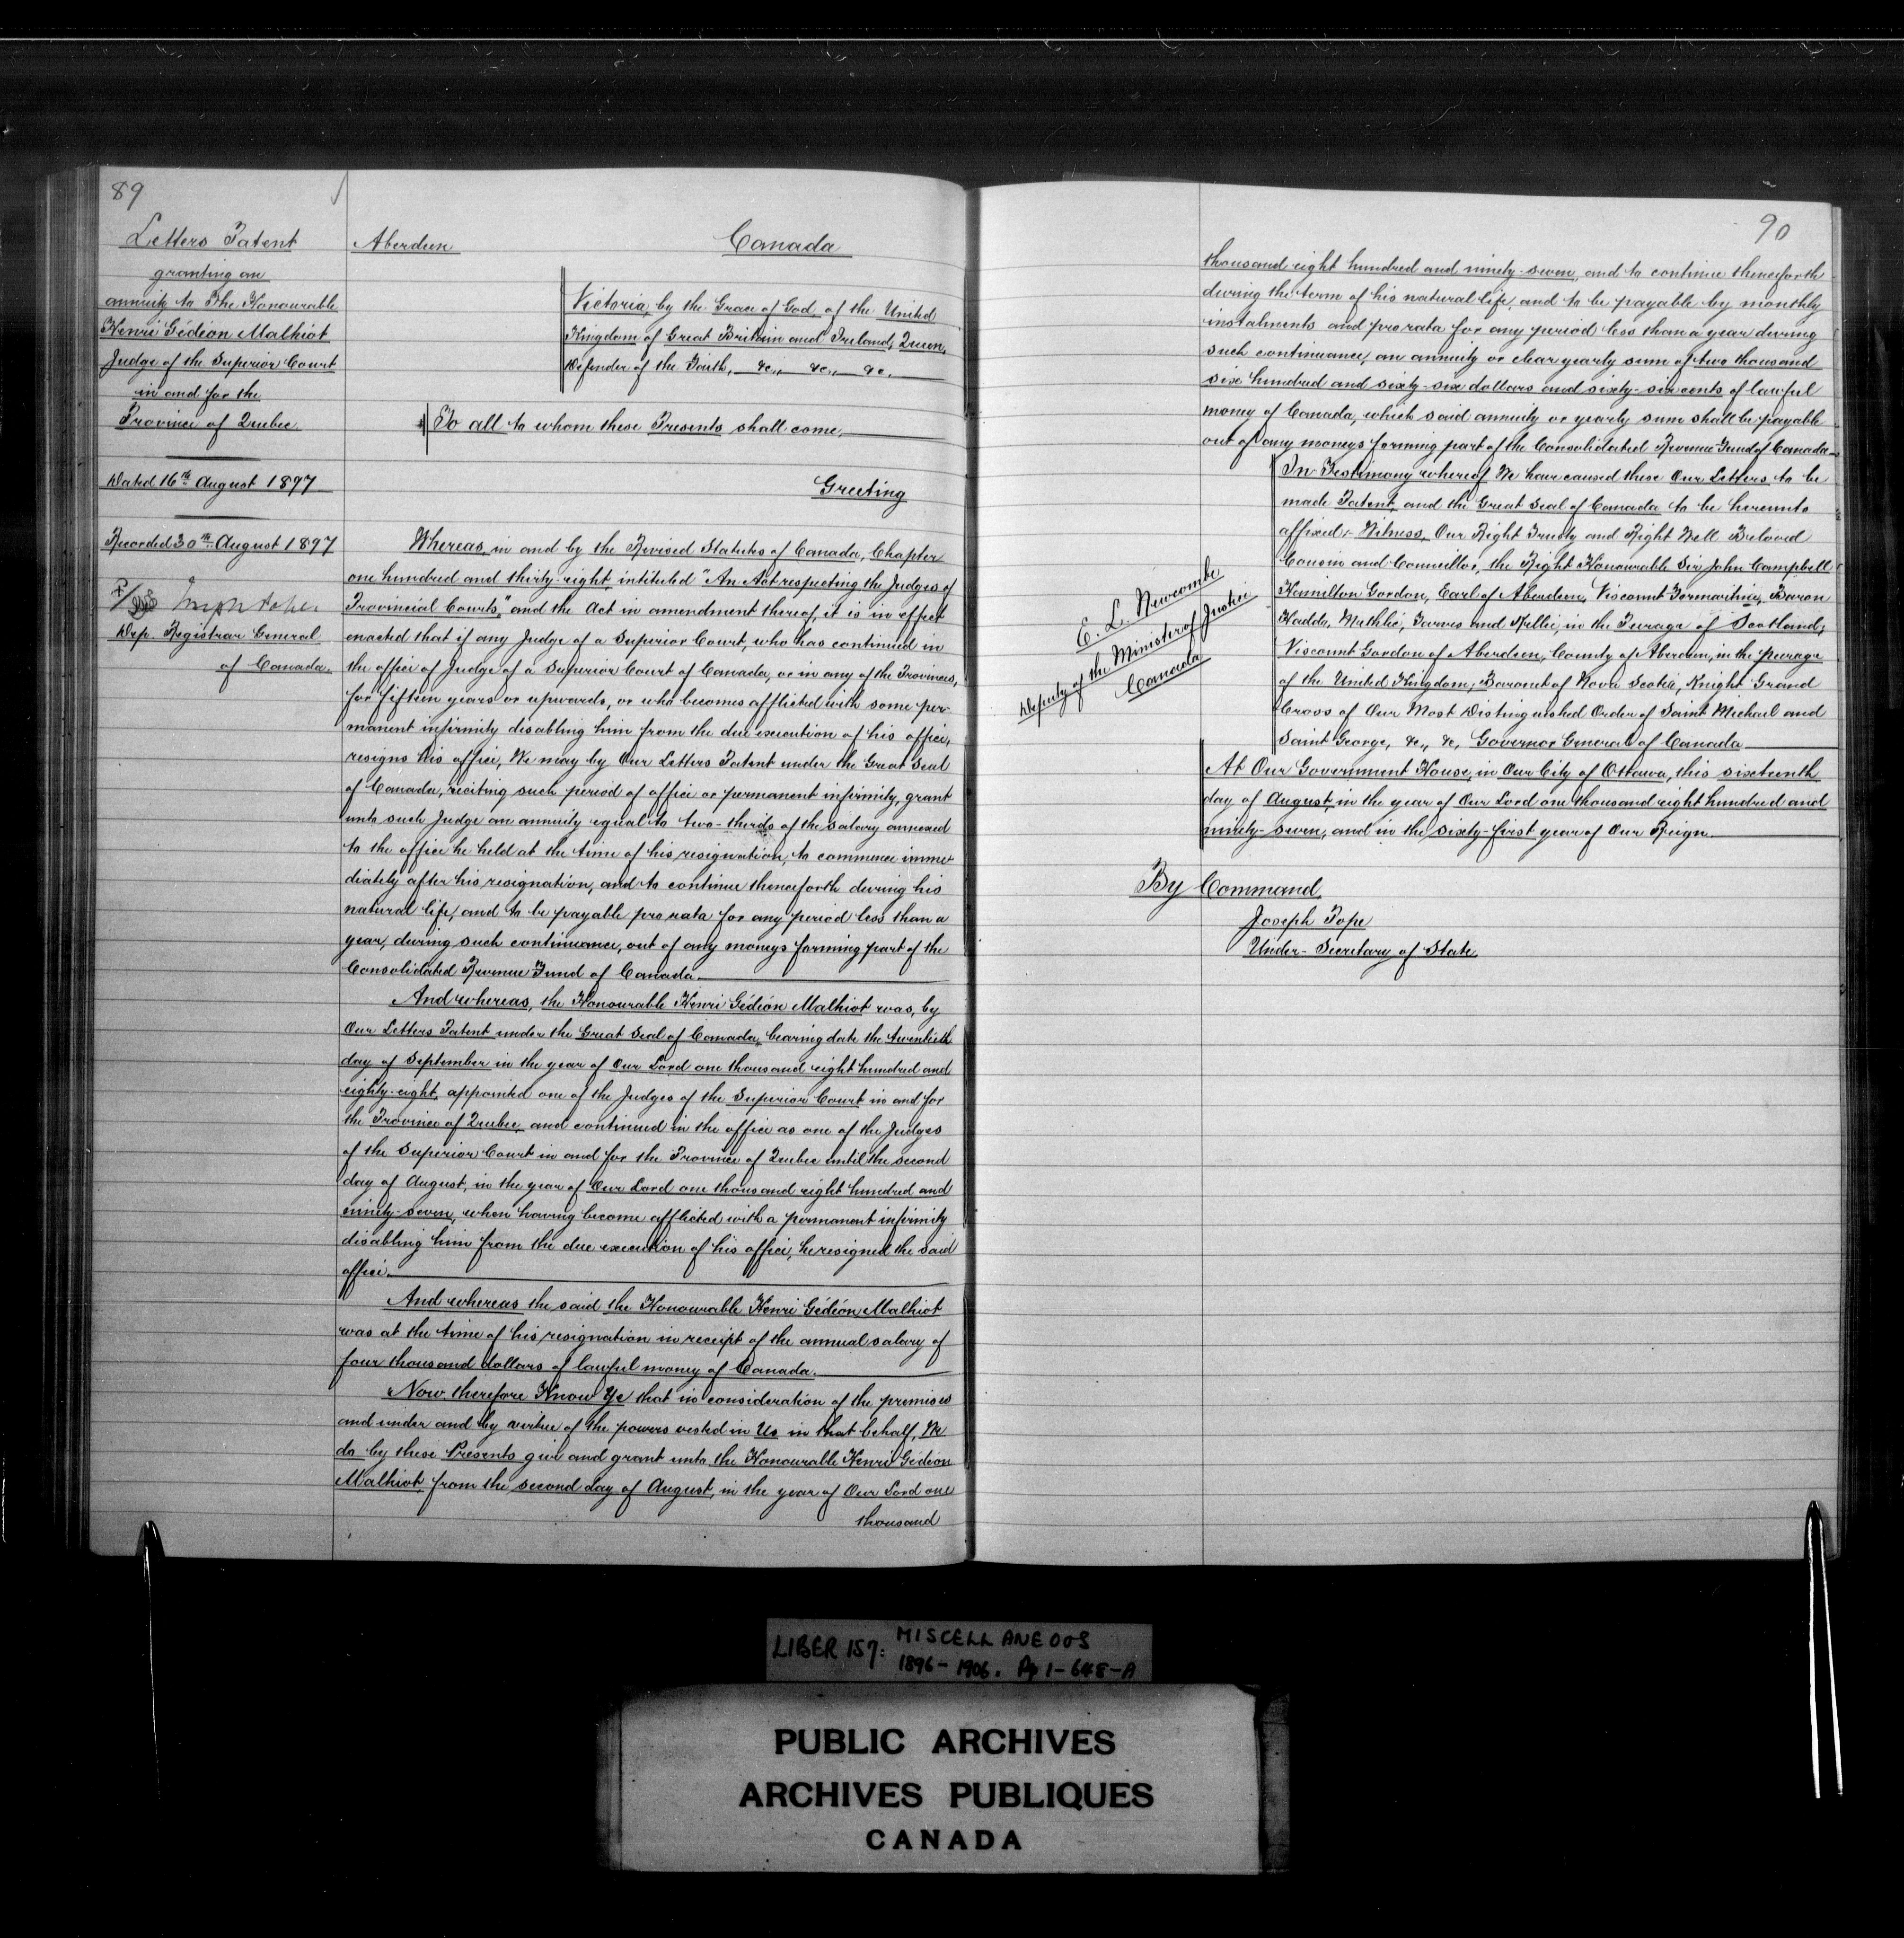 89
Letters Patent
granting an
annuity to The Honourable
Henri Gédéon Malhiot
Judge of the Superior Court
in and for the
Province of Quebec.
Dated 16th August 1897
Recorded 30th August 1897
Joseph Pope
Dep. Registrar General
of Canada.
Aberdeen Canada
Victoria, by the Grace of God, of the United
Kingdom of Great Britain and Ireland, Queen,
Defender of the Faith, &c., &c., &c.
To all to whom these Presents shall come,
Greeting
Whereas in and by the Revised Statutes of Canada, Chapter
one hundred and thirty-eight, intituled "An Act respecting the Judges of
Provincial Courts," and the Act in amendment thereof, it is in effect
enacted that if any Judge of a Superior Court, who has continued in
the office of Judge of a Superior Court of Canada, or in any of the Provinces,
for fifteen years or upwards, or who becomes afflicted with some per-
manent infirmity disabling him from the due execution of his office,
resigns his office, We may by Our Letters Patent under the Great Seal
of Canada, reciting such period of office or permanent infirmity, grant
unto such Judge an annuity equal to two-thirds of the salary annexed
to the office he held at the time of his resignation, to commence imme-
diately after his resignation, and to continue thenceforth during his
natural life, and to be payable pro rata for any period less than a
year, during such continuance, out of any moneys forming part of the
Consolidated Revenue Fund of Canada.
And whereas, the Honourable Henri Gédéon Malhiot was, by
Our Letters Patent under the Great Seal of Canada, bearing date the twentieth
day of September in the year of Our Lord one thousand eight hundred and
eighty-eight, appointed one of the Judges of the Superior Court in and for
the Province of Quebec, and continued in the office as one of the Judges
of the Superior Court in and for the Province of Quebec until the second
day of August, in the year of Our Lord one thousand eight hundred and
ninety-seven, when having become afflicted with a permanent infirmity
disabling him from the due execution of his office, he resigned the said
office.
And whereas the said the Honourable Henri Gédéon Malhiot
was at the time of his resignation in receipt of the annual salary of
four thousand dollars of lawful money of Canada.
Now therefore Know Ye that in consideration of the premises
and under and by virtue of the powers vested in Us in that behalf, We
do by these Presents give and grant unto the Honourable Henri Gédéon
Malhiot, from the second day of August, in the year of Our Lord one
thousand
90
thousand eight hundred and ninety-seven, and to continue thenceforth
during the term of his natural life, and to be payable by monthly
instalments and pro rata for any period less than a year during
such continuance, an annuity or clear yearly sum of two thousand
six hundred and sixty-six dollars and sixty-six cents of lawful
money of Canada, which said annuity or yearly sum shall be payable
out of any moneys forming part of the Consolidated Revenue Fund of Canada
In Testimony whereof We have caused these Our Letters to be
made Patent, and the Great Seal of Canada to be hereunto
affixed:- Witness, Our Right Trusty and Right Well Beloved
Cousin and Councillor, the Right Honourable Sir John Campbell
Hamilton Gordon, Earl of Aberdeen, Viscount Formartine, Baron
Haddo, Methlic, Tarves and Kellie, in the Peerage of Scotland;
Viscount Gordon of Aberdeen, County of Aberdeen, in the peerage
of the United Kingdom; Baronet of Nova Scotia, Knight Grand
Cross of Our Most Distinguished Order of Saint Michael and
Saint George, &c., &c., Governor General of Canada
At Our Government House, in Our City of Ottawa, this sixteenth
day of August, in the year of Our Lord one thousand eight hundred and
ninety-seven, and in the sixty-first year of Our Reign.
E. L. Newcombe
Deputy of the Minister of Justice
Canada
By Command,
Joseph Pope
Under-Secretary of State.
LIBER 157: MISCELLANEOUS
1896-1906. Pp 1-648-A
PUBLIC ARCHIVES
ARCHIVES PUBLIQUES
CANADA